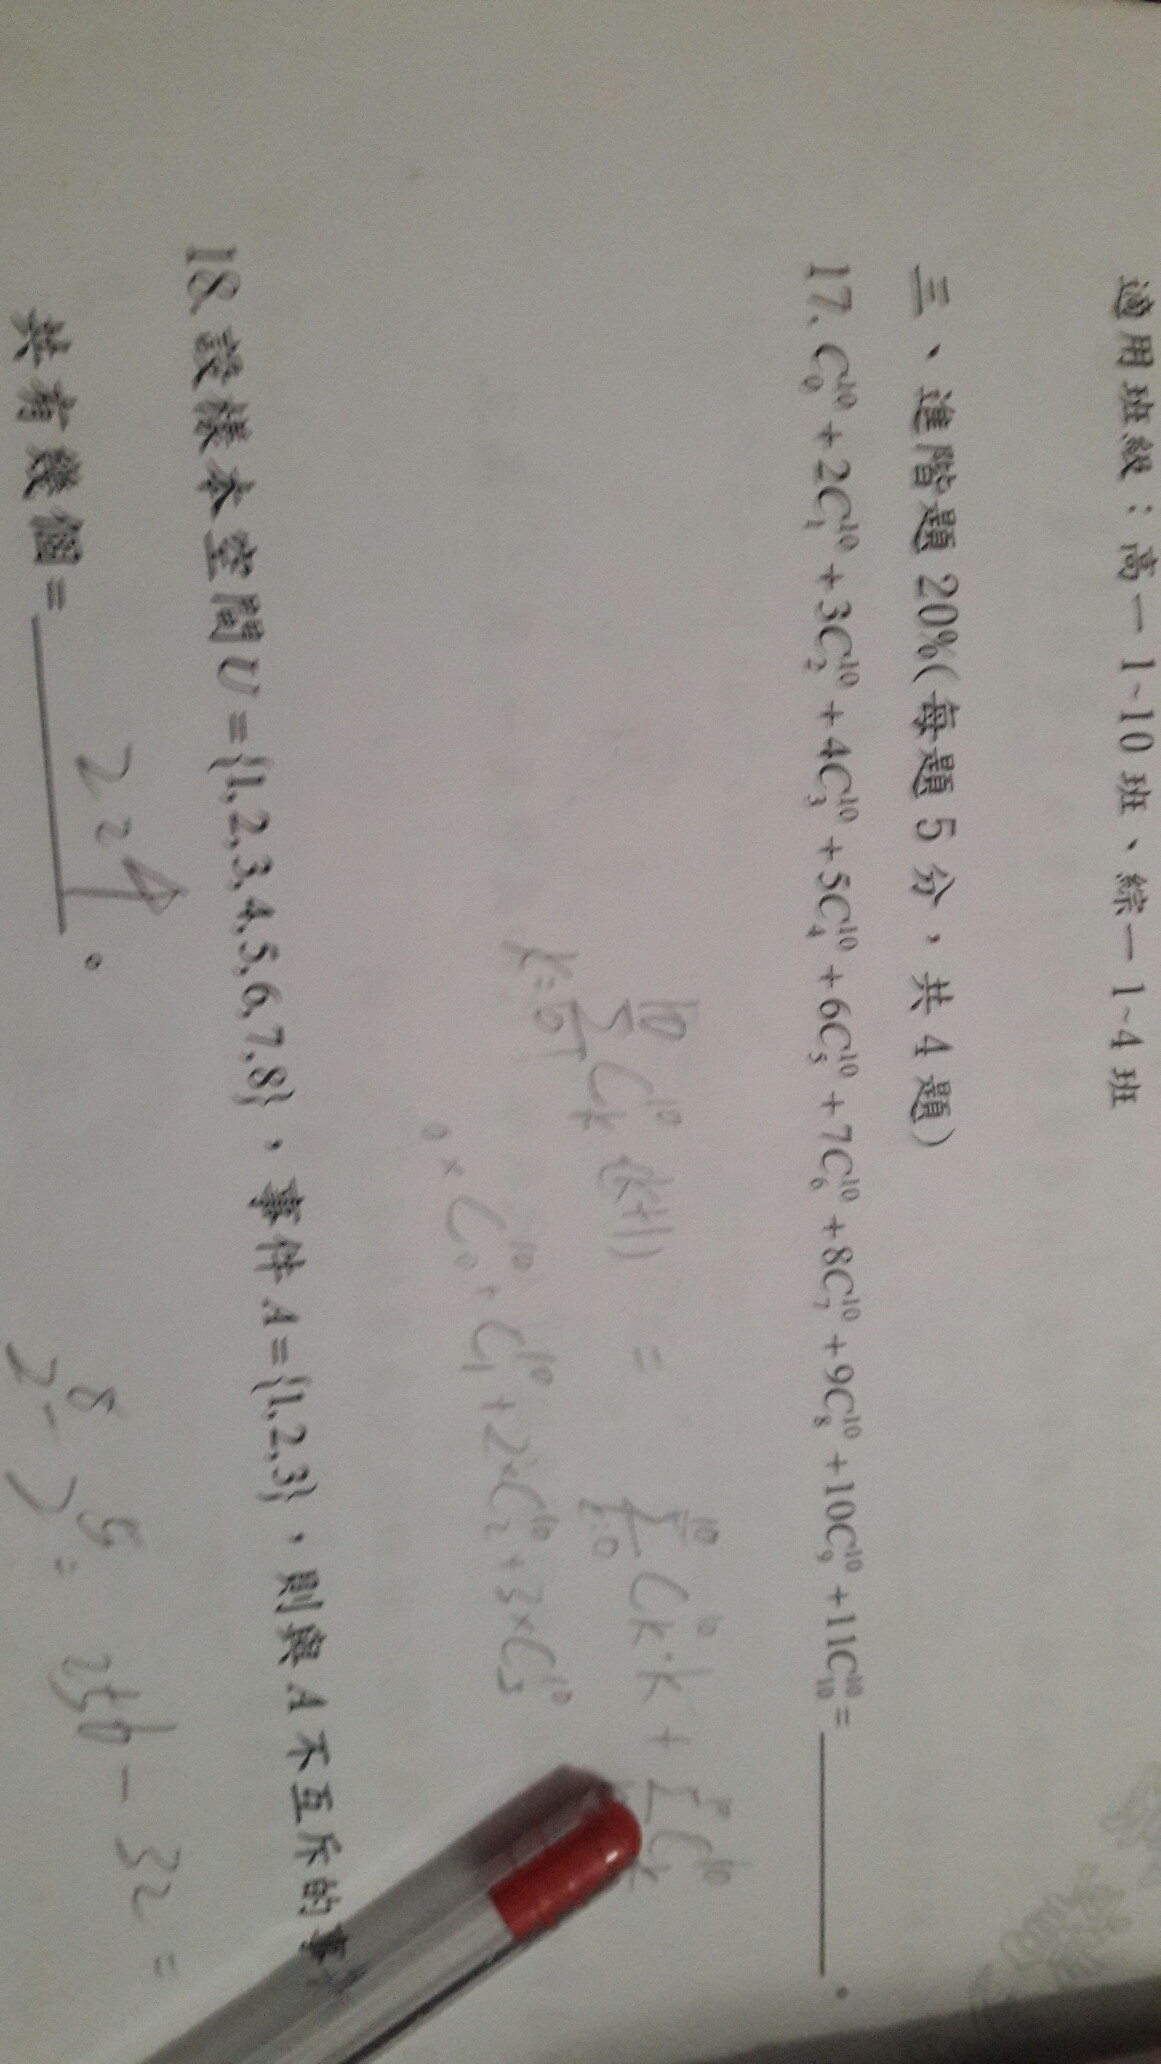 適用班級：高一 1~10 班、綜一 1~4 班
三、進階題 20%(每題 5 分，共 4 題)
17、C₀¹⁰ + 2C₁¹⁰ + 3C₂¹⁰ + 4C₃¹⁰ + 5C₄¹⁰ + 6C₅¹⁰ + 7C₆¹⁰ + 8C₇¹⁰ + 9C₈¹⁰ + 10C₉¹⁰ + 11C₁₀¹⁰ = ________。
10 Σ k=0 Cₖ¹⁰ (k+1) = 10 Σ k=0 Cₖ¹⁰·k + Σ Cₖ¹⁰
0×C₀¹⁰ + C₁¹⁰ + 2×C₂¹⁰ + 3×C₃¹⁰
18、設樣本空間 U = {1,2,3,4,5,6,7,8}，事件 A = {1,2,3}，則與 A 不互斥的事
共有幾個 = 224。
2⁸ - 2⁵ = 256 - 32 =